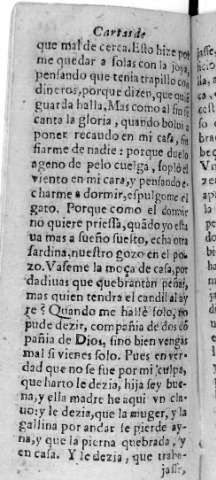 Cartas de
que mal de cerca. Esto hize por
me quedar a solas con la joya,
pensando que tenia trapillo con
dineros, porque dizen, que quiẽ
guarda halla, Mas como al fin se
canta la gloria, quando bolui a
poner recaudo en mi casa, sin
fiarme de nadie: porque duelo
ageno de pelo cuelga, soplò el
viento en mi cara, y pensando e-
charme a dormir, espulgome el
gato. Porque como el dormir
no quiere priessa, quãdo yo esta
ua mas a sueño suelto, echa otra
sardina, nuestro gozo en el po-
zo. Vaseme la moça de casa, por
dadiuas que quebrantan peñas,
mas quien tendra el candil al ay
re? Quando me hallè solo, no
pude dezir, compañia de dos cõ
pañia de Dios, sino bien vengas
mal si vienes solo. Pues en ver-
dad que no se fue por mi culpa,
que harto le dezia, hija sey bue-
na, y ella madre he aqui vn cla-
uo: y le dezia, que la muger, y la
gallina por andar se pierde ay-
na, y que la pierna quebrada, y
en casa. Y le dezia, que traba-
jasse,